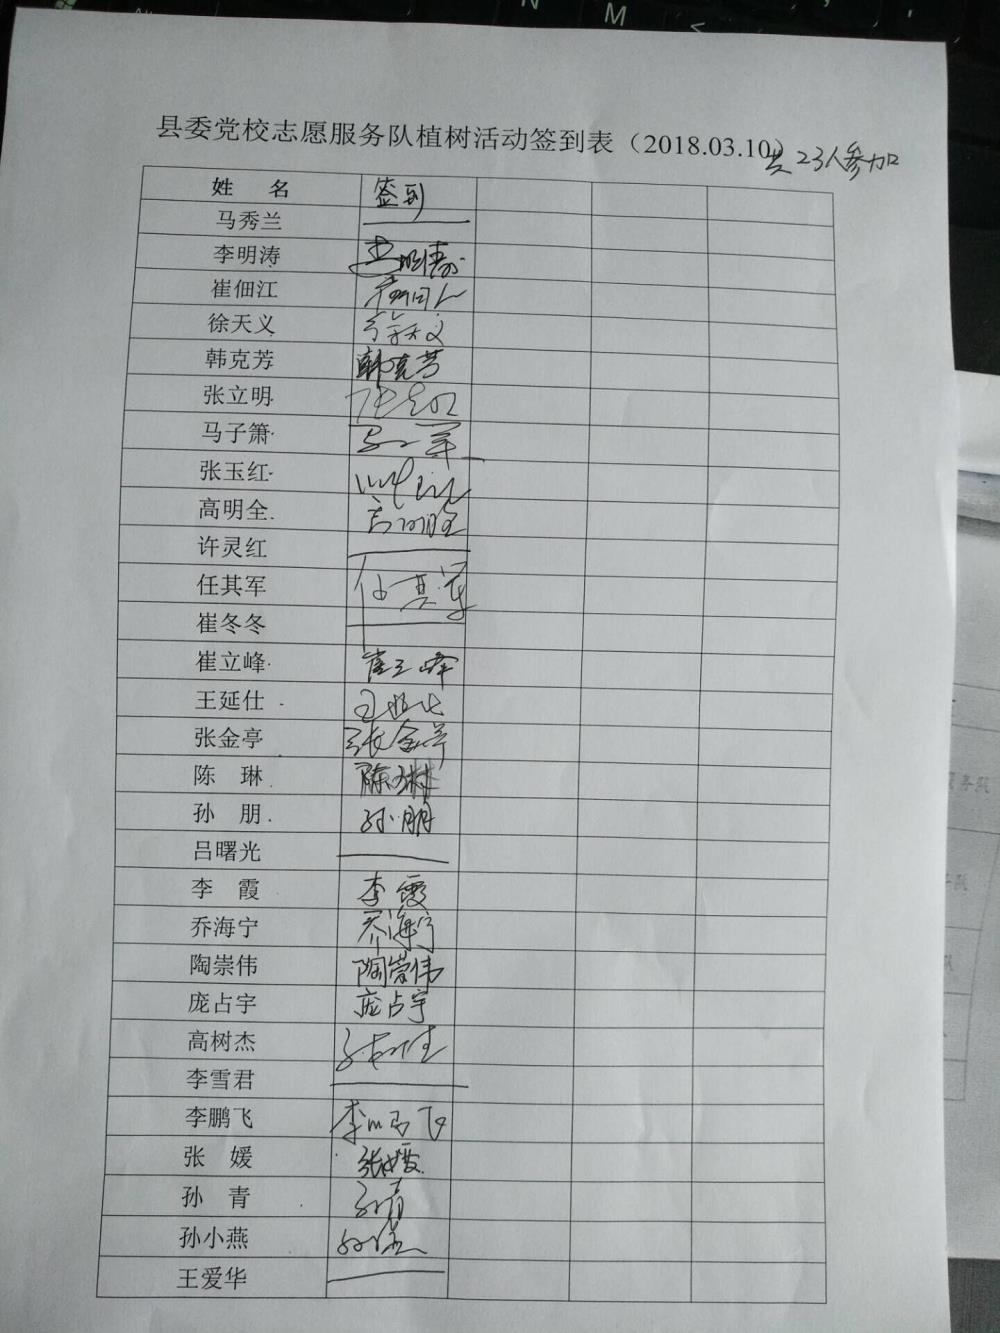 县委党校志愿服务队植树活动签到表（2018.03.10）共23人参加
姓 名 签到
马秀兰
李明涛 李明涛
崔佃江 崔佃江
徐天义 徐天义
韩克芳 韩克芳
张立明 张立明
马子箫 马子箫
张玉红 张玉红
高明全 高明全
许灵红
任其军 任其军
崔冬冬
崔立峰 崔立峰
王延仕 王延仕
张金亭 张金亭
陈 琳 陈琳
孙 朋 孙朋
吕曙光
李 霞 李霞
乔海宁 乔海宁
陶崇伟 陶崇伟
庞占宇 庞占宇
高树杰
李雪君
李鹏飞 李鹏飞
张 媛 张媛
孙 青 孙青
孙小燕 孙小燕
王爱华